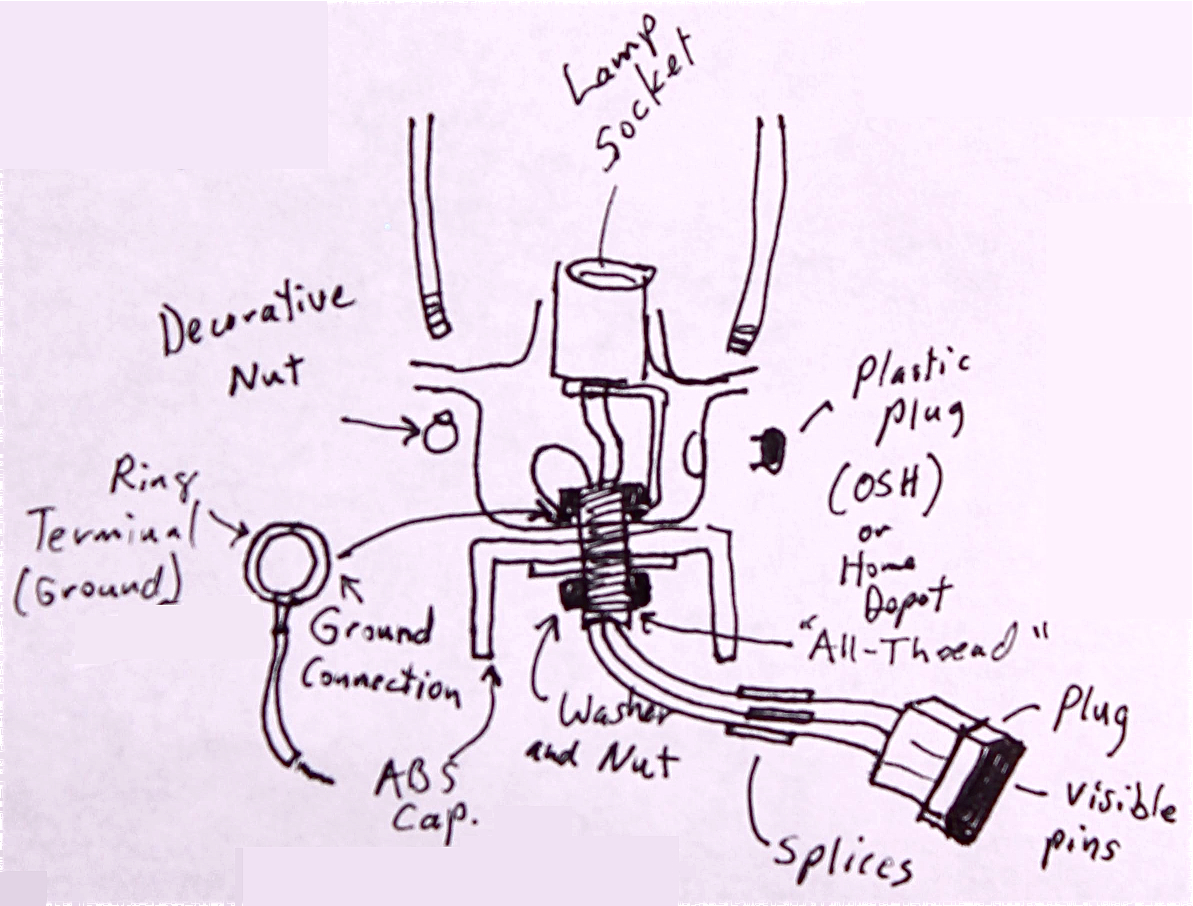 Lamp
Socket
Decorative
Nut
Plastic
plug
(OSH)
or
Home
Depot
Ring
Terminal
(Ground)
Ground
Connection
"All-Thread"
Washer
and Nut
ABS
Cap.
Plug
visible
pins
Splices